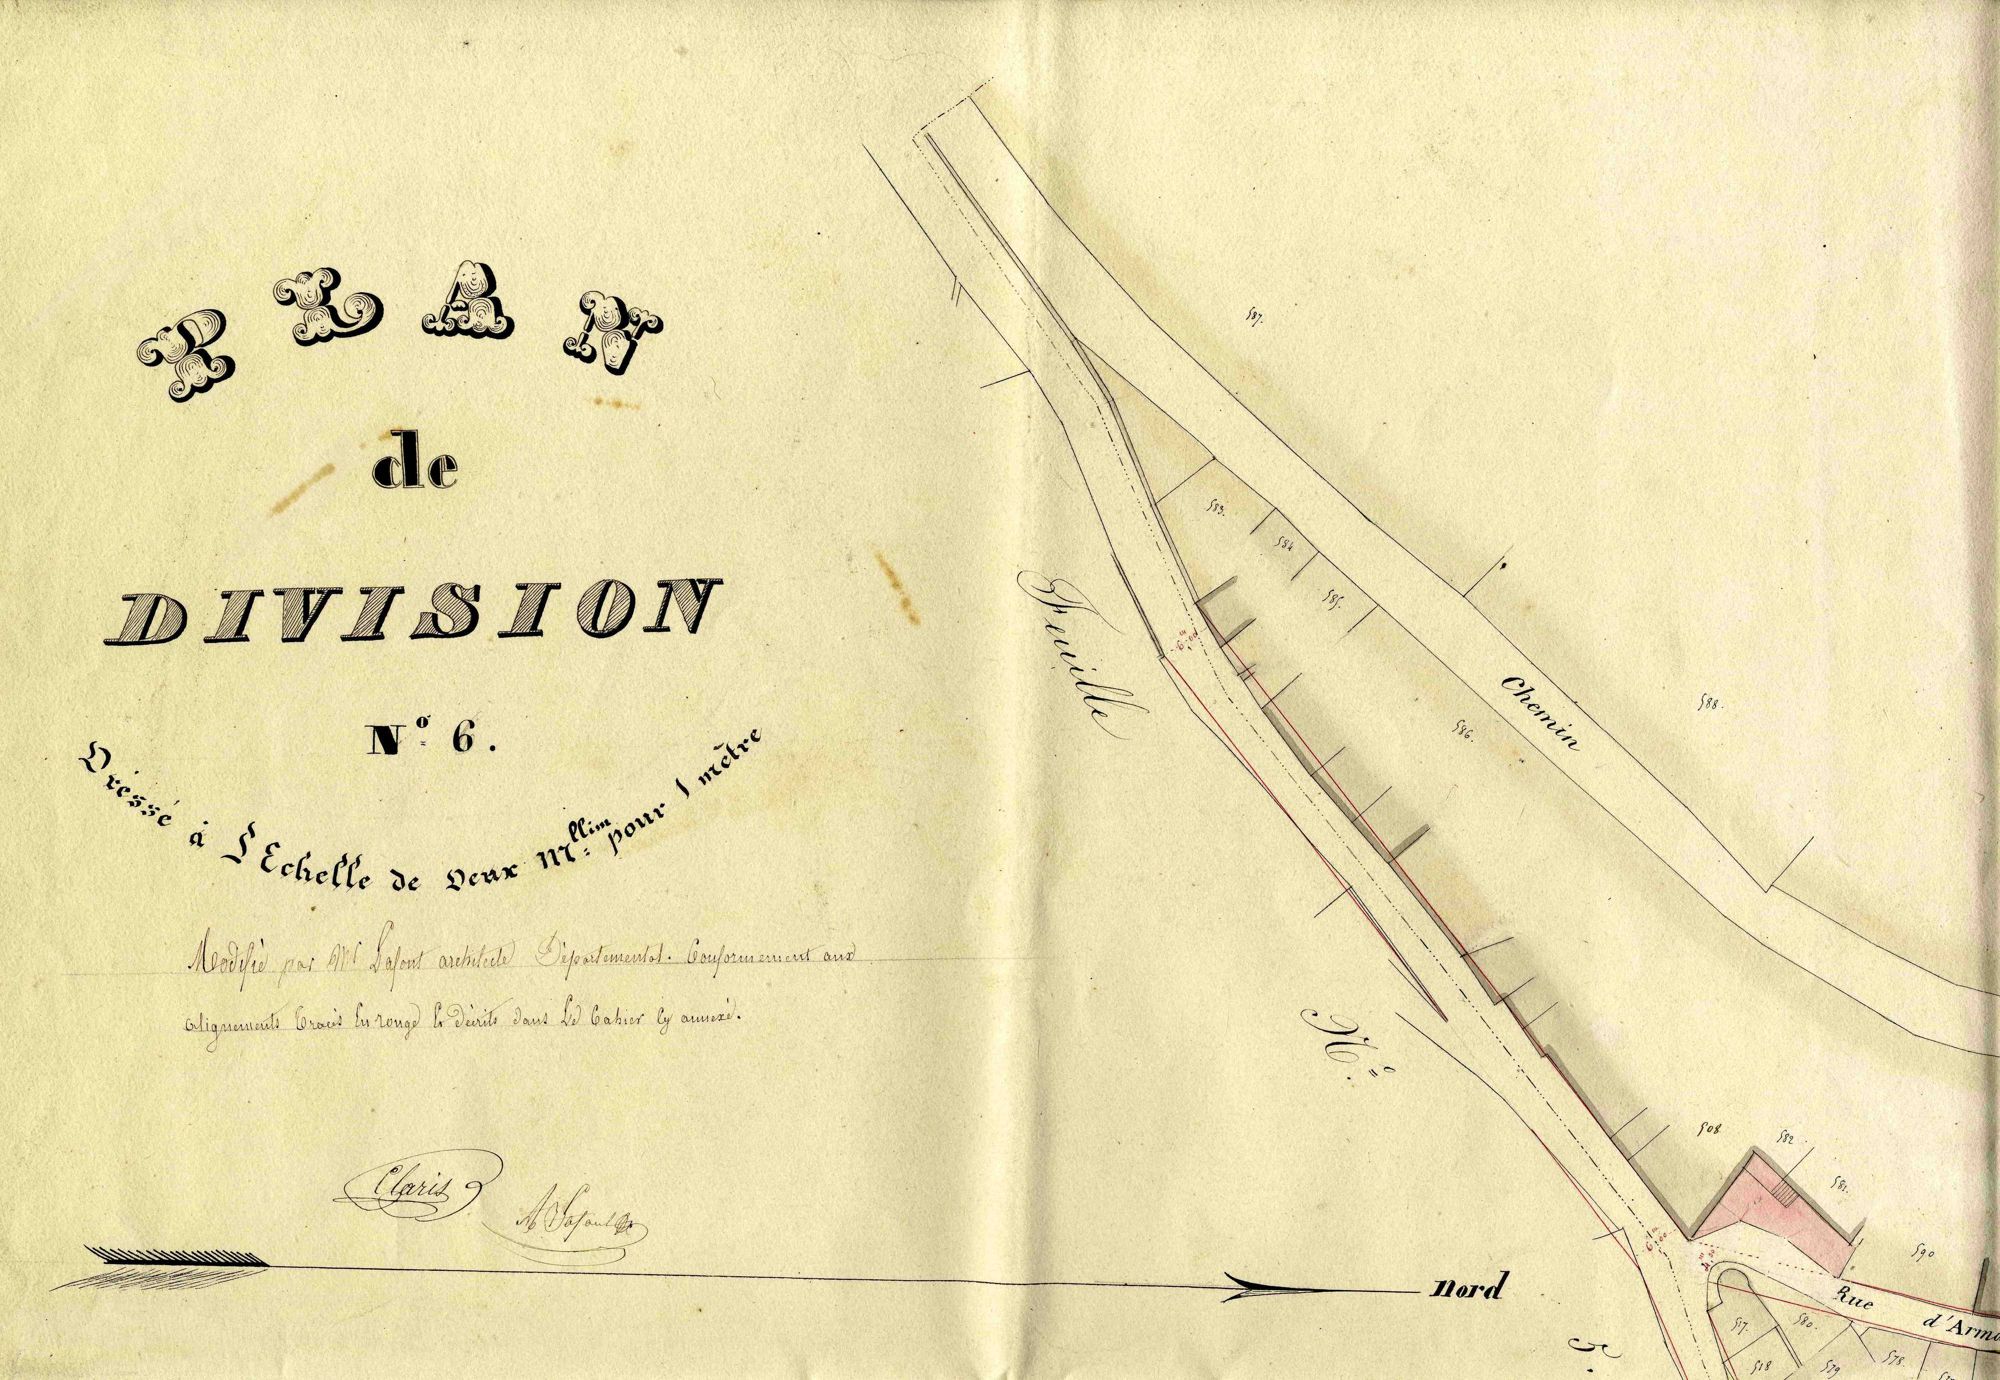 PLAN
de
DIVISION
Nº 6.
Dressé à L'Echelle de Deux Mllim pour 1 mètre
Modifié par Mr Lafont architecte Départemental. Conformement aux
alignements Tracés En rouge Et décrits dans Le Cahier Cy annexé.
Claris
A Lafont
Nord
Feuille
Nº
5.
Chemin
Rue
d'Arma
587.
583.
584
585.
586.
588.
508
582
581.
590
517.
580.
518
579
578.
6m00
6m00